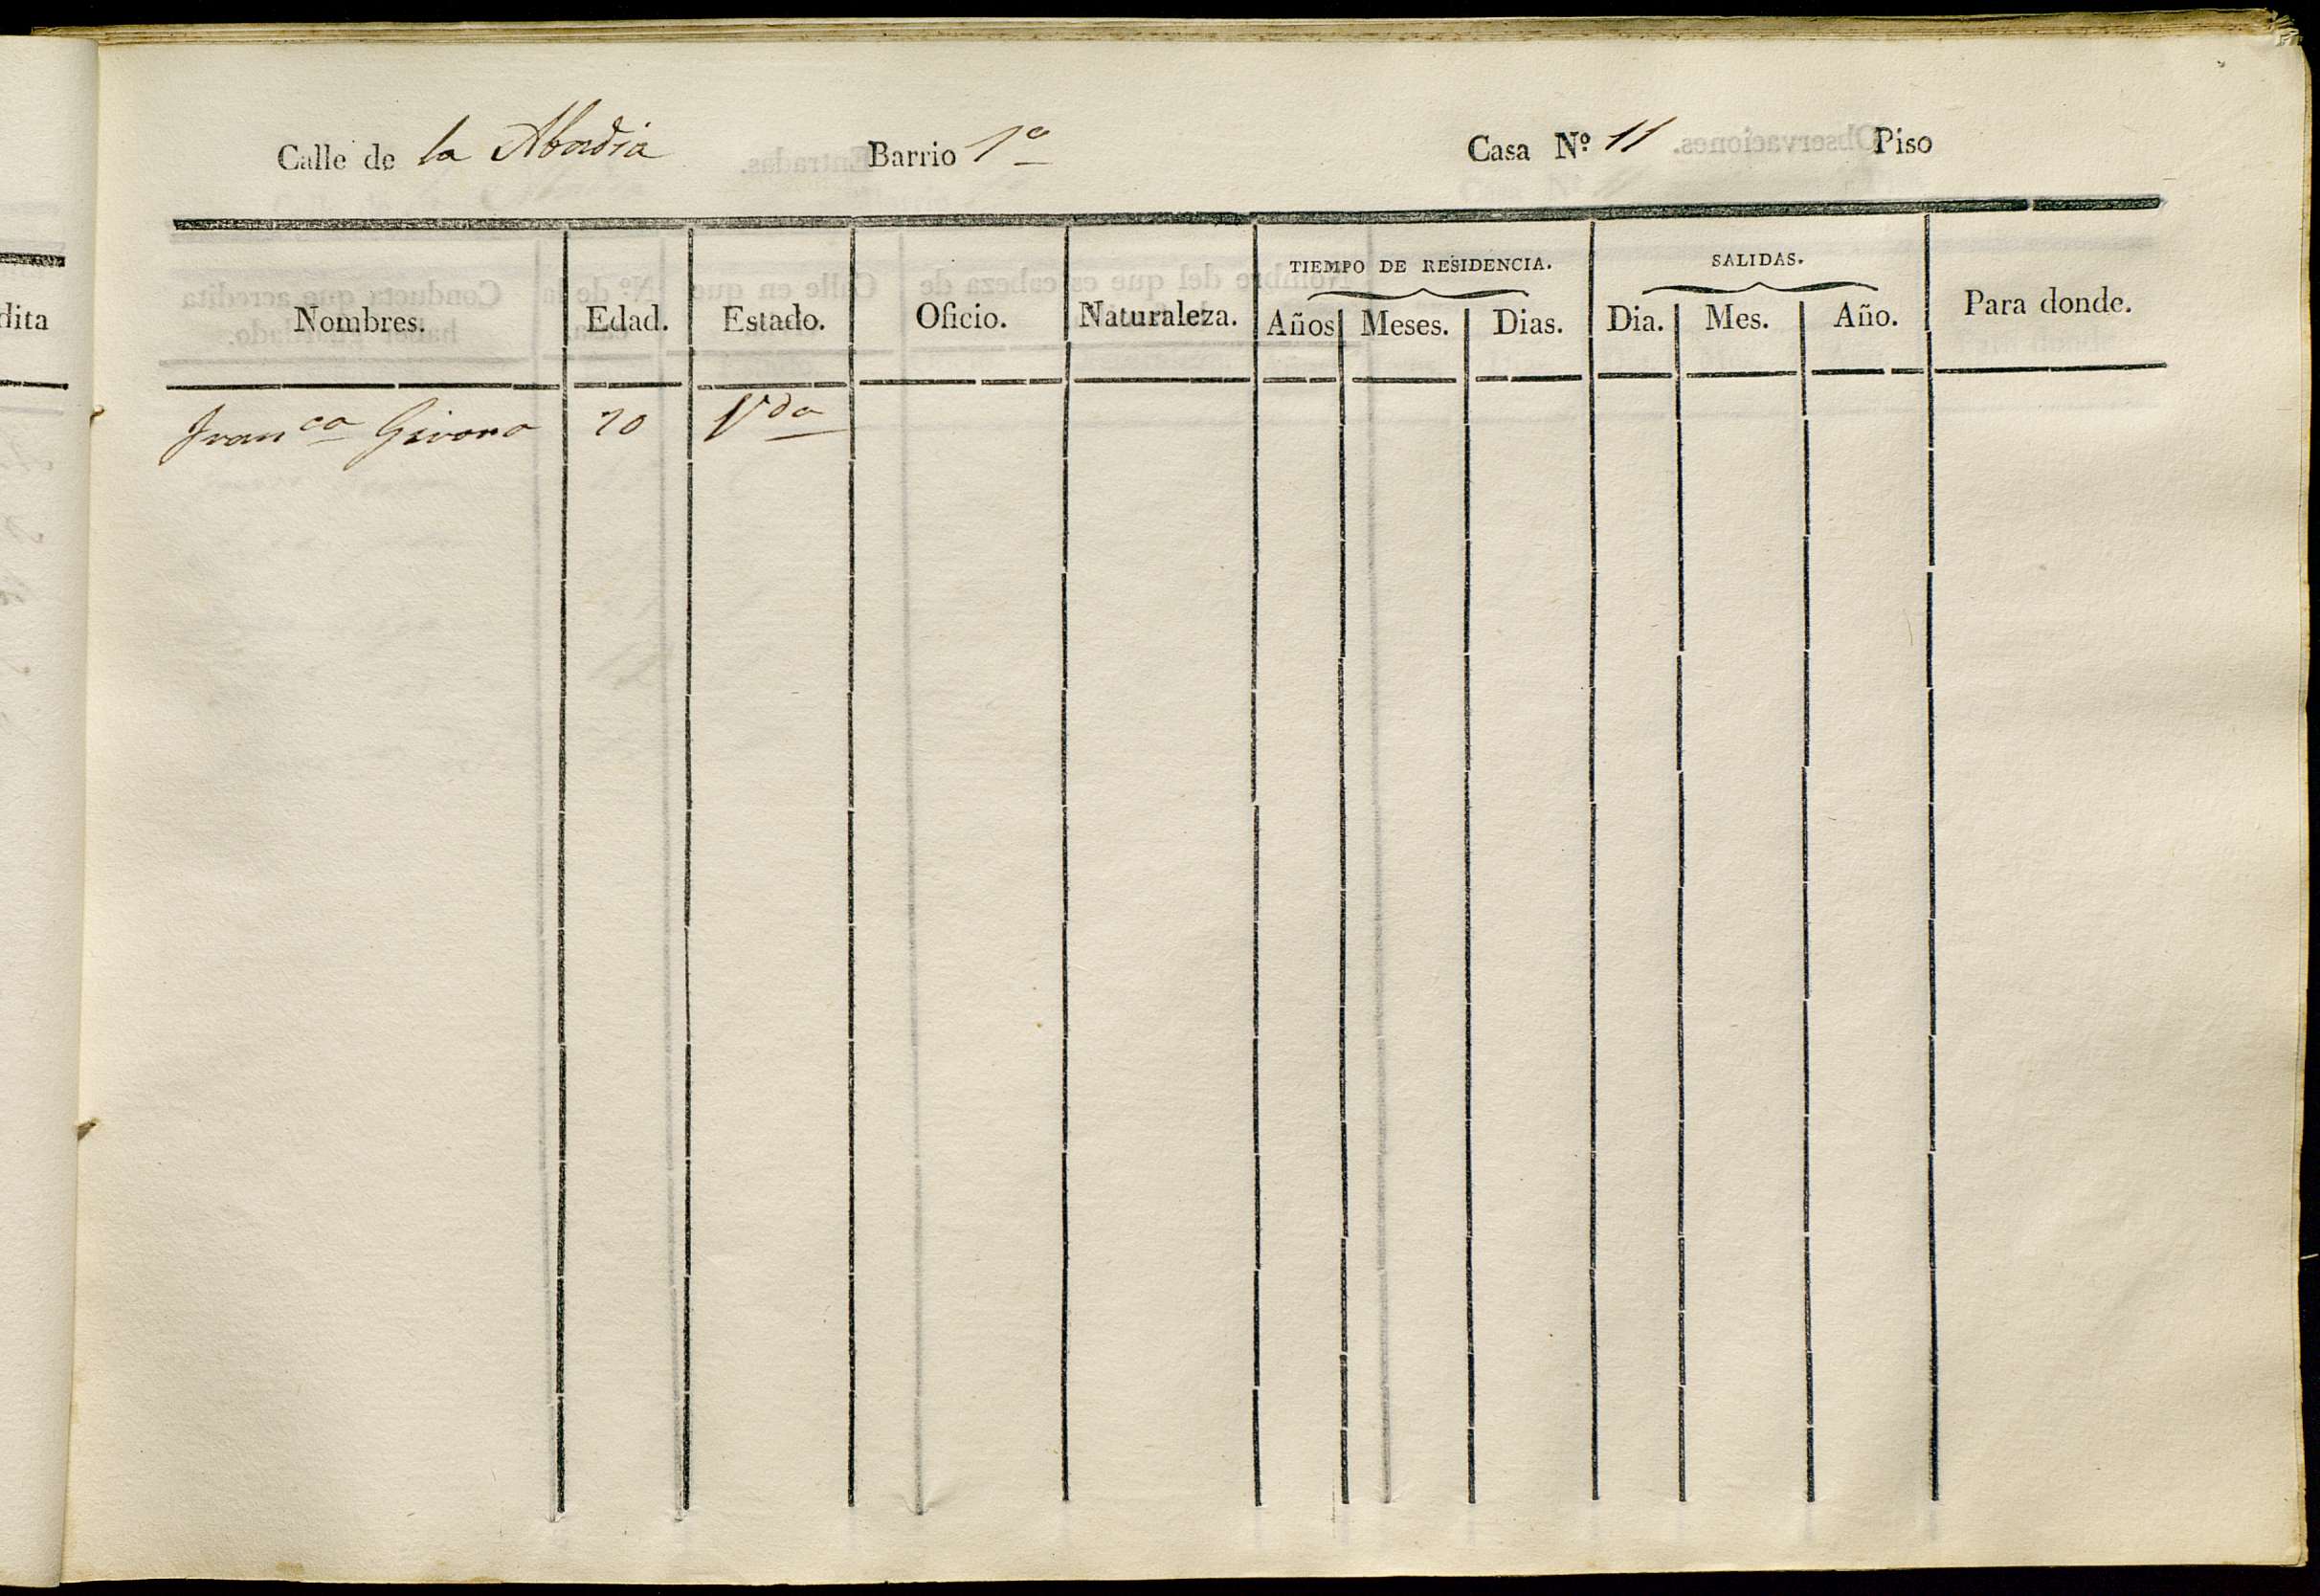 dita
Calle de la Abadia Barrio 1º Casa Nº 11 Piso
Nombres. Edad. Estado. Oficio. Naturaleza. TIEMPO DE RESIDENCIA. Años Meses. Dias. SALIDAS. Dia. Mes. Año. Para donde.
Franca Girona 70 Vda